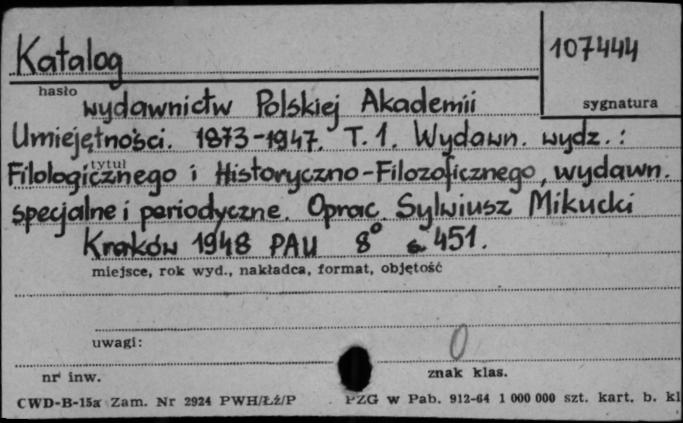 Katalog
107444
hasło
sygnatura
wydawnictw Polskiej Akademii
Umiejętności. 1873-1947. T.1. Wydawn. wydz.:
tytuł
Filologicznego i Historyczno-Filozoficznego, wydawn.
specjalne i periodyczne. Oprac. Sylwiusz Mikucki
Kraków 1948 PAU 8° s. 451.
miejsce, rok wyd., nakładca, format, objętość
uwagi:
0
nr inw.
znak klas.
CWD-B-15a Zam. Nr 2924 PWH/Łź/P
PZG w Pab. 912-64 1 000 000 szt. kart. b. kl